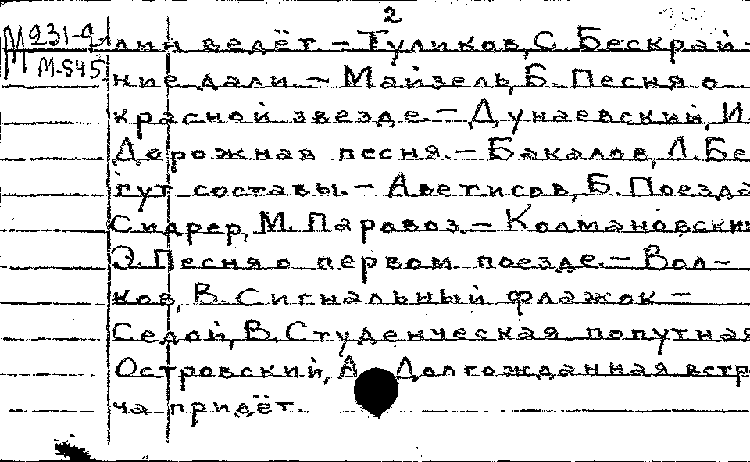 2
М 931-9
М-845
лин ведёт. – Туликов, С. Бескрай-
ние дали. – Майзель, Б. Песня о
красной звезде. – Дунаевский, И.
Дорожная песня. – Бакалов, Л. Бе
гут составы. – Аветисов, Б. Поезда
Сидрер, М. Паровоз. – Колмановский
Э. Песня о первом поезде. – Вол-
ков, В. Сигнальный флажок –
Седой, В. Студенческая попутная
Островский, А. Долгожданная встре
ча придёт.